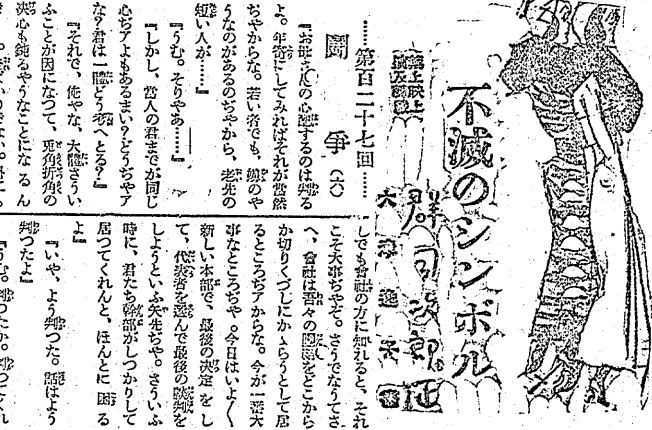 不滅のシンボル
……第百二十七回……
鬪爭(六)
『お母さんの心配するのは判る
よ。年寄にしてみればそれが當然
ぢやからな。若い者でも、
うなのがあるのぢやから、老先の
短い人が……』
『うむ。そりやあ……』
『しかし、當人の君までが同じ
心ぢアよもあるまい?どうぢやア
な?君は一體どう考へとる?』
『それで、俺やな、大體さうい
ふことが因になつて、兎角折角の
決心も鈍るやうなことになるん
しでも會社の方に知れると、それ
こそ大事ぢやぞ。さうでなうてさ
へ、會社は吾々の團結をどこから
か切りくづしにかゝらうとして居
るところぢアからな。今が一番大
事なところぢや。今日はいよ〱
新しい本部で、最後の決定をし
て、代表者を選んで最後の談判を
しようといふ矢先ぢや。さういふ
時に、君たち幹部がしつかりして
居つてくれんと、ほんとに困る
よ』
『いや、よう判つた。話はよう
判つたよ』
『うむ。判つたか。判つてくれ